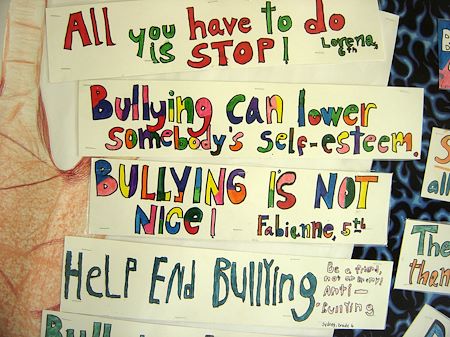 All you have to do
is STOP!
Lorena,
6th
Bullying can lower
somebody's self-esteem.
BULLYING IS NOT
NICE!
Fabianne, 5th
HELP END BUllYing
Be a friend,
Anti-
Bullying
Sydney, Grade 6
The
than
all